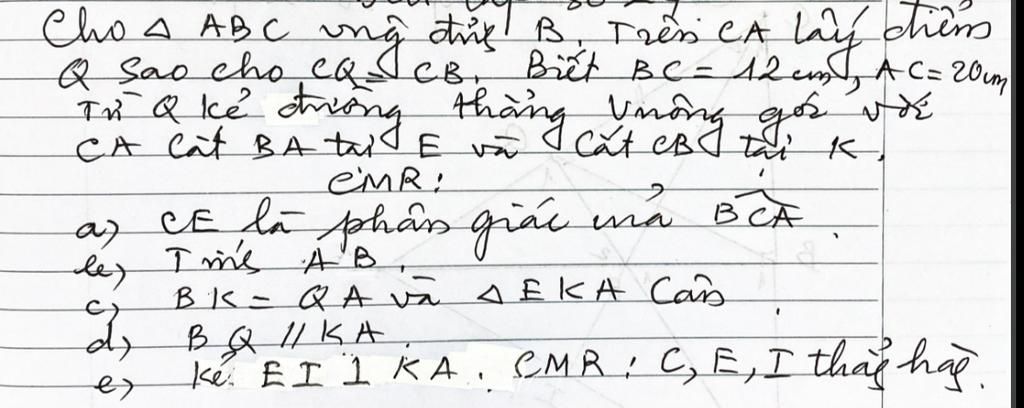 Cho Δ ABC vng đỉnh B. Trên CA lấy điểm
Q sao cho CQ = CB. Biết BC = 12cm, AC = 20cm
Từ Q kẻ đường thẳng vuông góc với
CA cắt BA tại E và cắt CB tại K.
CMR:
a) CE là phân giác của BCA.
b) Tính AB.
c) BK = QA và Δ EKA cân
d) BQ // KA.
e) Kẻ EI ⊥ KA. CMR: C, E, I thẳg hàg.